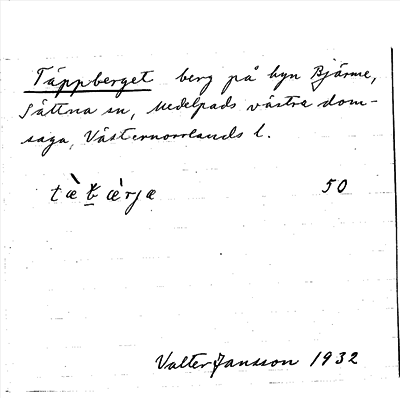 Täppberget berg på byn Bjärme,
Sättna sn, Medelpads västra dom-
saga, Västernorrlands l.
50
Valter Jansson 1932